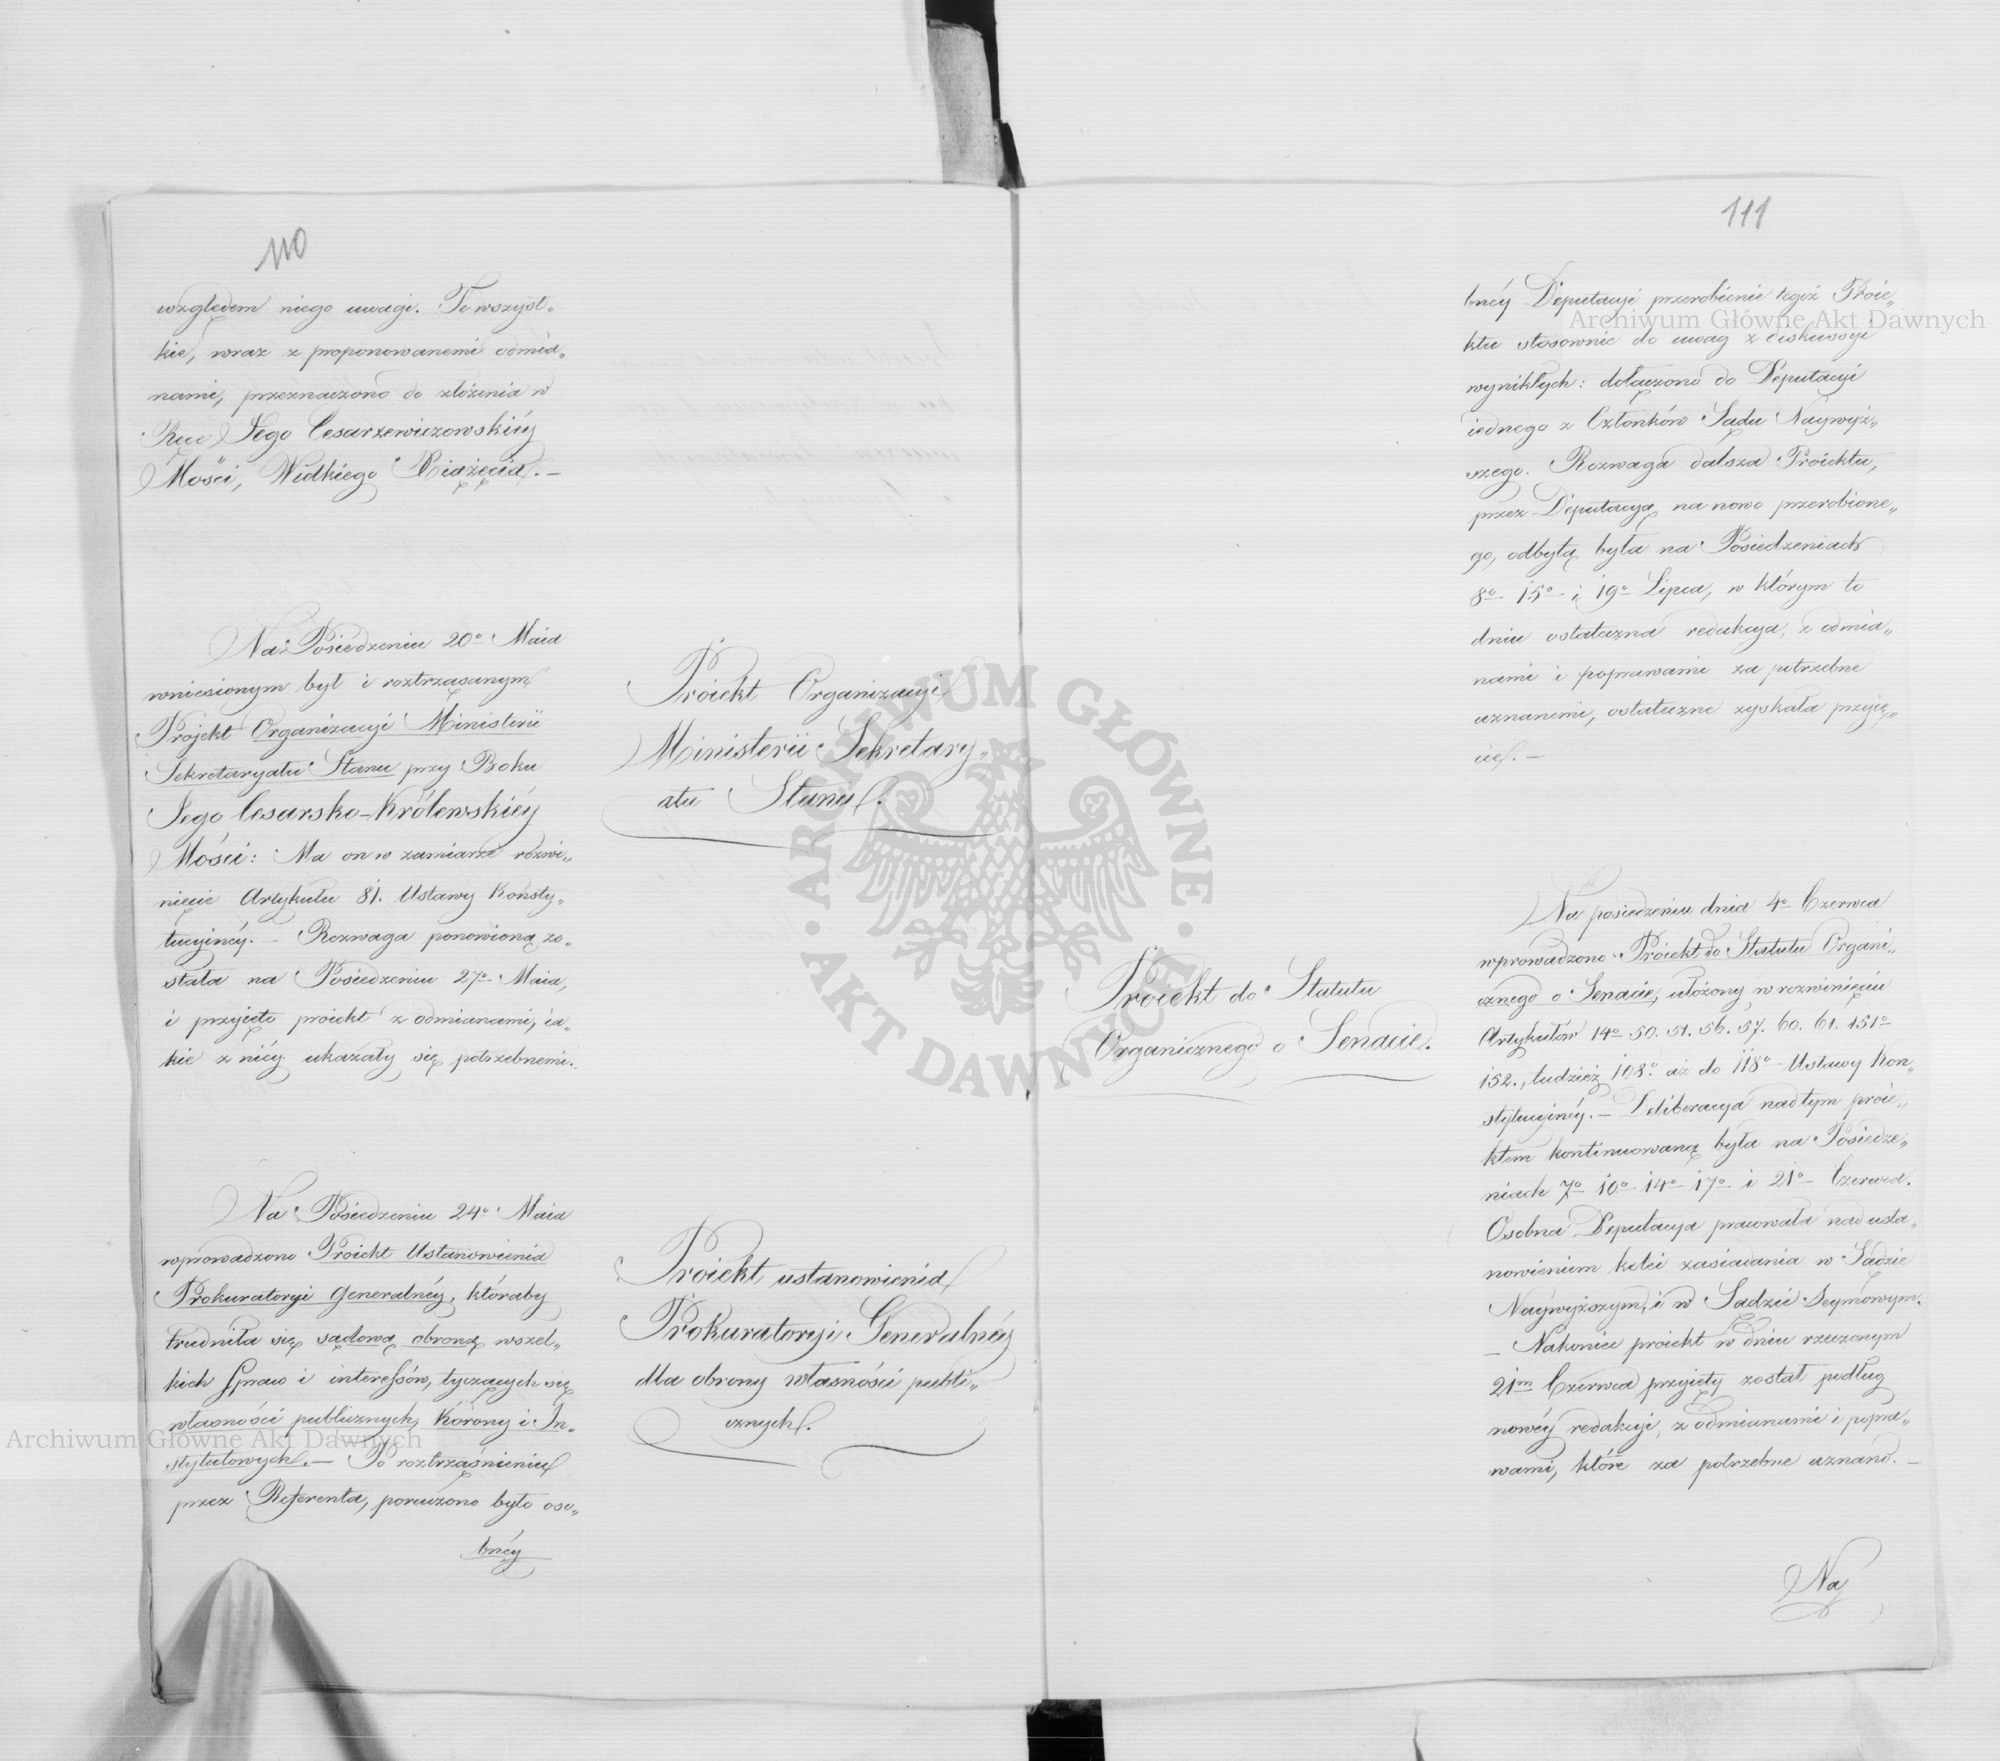 110
względem niego uwagi. Te wszyst„
kie, wraz z proponowanemi odmia„
nami, przeznaczono do złożenia w
Ręce Jego Cesarzewiczowskiéy
Mości, Wielkiego Xiążęcia. —
Na Posiedzeniu 20º Maia
wniesionym był i roztrząsanym
Projekt Organizacyi Ministerii
Sekretaryatu Stanu przy Boku
Jego Cesarsko-Królewskiéy
Mości: Ma on w zamiarze rozwi„
nięcie Artykułu 81. Ustawy Konsty„
tucyinéy. — Rozwaga ponowioną zo„
stała na Posiedzeniu 27º Maia,
i przyięto proiekt z odmianami, ia„
kie z niéy ukazały się potrzebnemi.
Proiekt Organizacyi
Ministerii Sekretary„
atu Stanu.
Na Posiedzeniu 24º Maia
wprowadzono Proiekt Ustanowienia
Prokuratoryi Generalnéy, któraby
trudniła się sądową obroną wszel„
kich Spraw i interessów, tyczących się
własności publicznych, Korony i In„
stytutowych. — Po roztrząśnieniu
przez Referenta, poruczono było oso„
bnéy
Proiekt ustanowienia
Prokuratoryi Generalnéy
dla obrony własności publi„
cznych.
111
bnéy Deputacyi przerobienie tegoż Proie„
ktu stosownie do uwag z diskussyi
wynikłych: dołączono do Deputacyi
iednego z Członków Sądu Naywyż„
szego. Rozwaga dalsza Proiektu,
przez Deputacyą na nowo przerobione„
go, odbytą była na Posiedzeniach
8º 15º i 19º Lipca, w którym to
dniu ostateczna redakcya, z odmia„
nami i poprawami za potrzebne
uznanemi, ostateczne zyskała przyię„
cie. —
Proiekt do Statutu
Organicznego o Senacie.
Na posiedzeniu dnia 4º Czerwca
wprowadzono Proiekt do Statutu Organi„
cznego o Senacie, ułożony w rozwinięciu
Artykułów 14º 50. 51. 56. 57. 60. 61. 151º
152., tudzież 108º aż do 118º Ustawy Kon„
stytucyinéy. — Deliberacya nad tym proie„
ktem kontinuowaną była na Posiedze„
niach 7º 10º 14º 17º i 21º Czerwca.
Osobna Deputacya pracowała nad usta„
nowieniem kolei zasiadania w Sądzie
Naywyższym, i w Sądzie Seymowym.
— Nakoniec proiekt w dniu rzeczonym
21m Czerwca przyięty został podług
nowéy redakcyi, z odmianami i popra„
wami, które za potrzebne uznano. —
Na
Archiwum Główne Akt Dawnych
Archiwum Główne Akt Dawnych
ARCHIWUM GŁÓWNE · AKT DAWNYCH ·